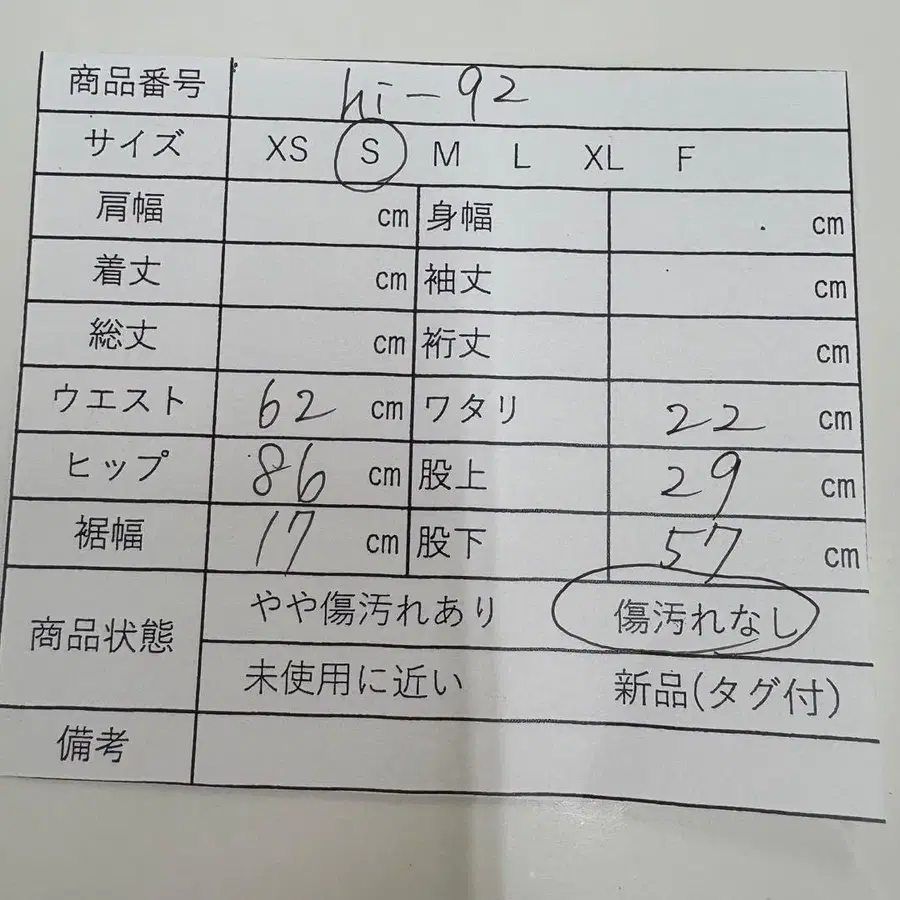 商品番号 hi-92
サイズ XS S M L XL F
肩幅 cm 身幅 cm
着丈 cm 袖丈 cm
総丈 cm 裄丈 cm
ウエスト 62 cm ワタリ 22 cm
ヒップ 86 cm 股上 29 cm
裾幅 17 cm 股下 57 cm
商品状態 やや傷汚れあり 傷汚れなし
未使用に近い 新品(タグ付)
備考